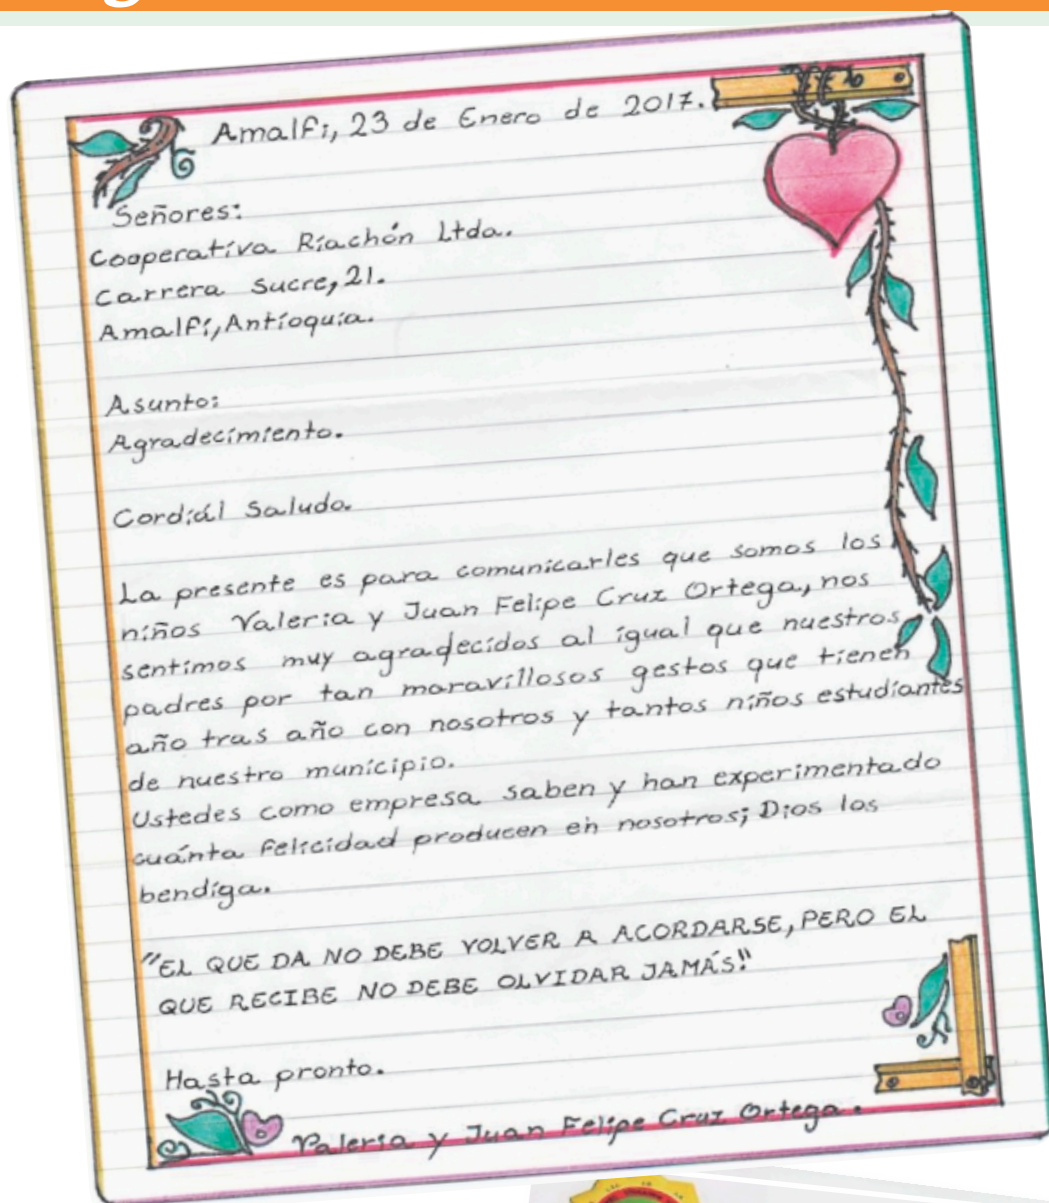 Amalfi, 23 de Enero de 2017.
Señores:
Cooperativa Riachón Ltda.
Carrera Sucre, 21.
Amalfí, Antioquia.
Asunto:
Agradecimiento.
Cordiál Saludo.
La presente es para comunicarles que somos los
niños Valeria y Juan Felipe Cruz Ortega, nos
sentimos muy agradecidos al igual que nuestros
padres por tan maravillosos gestos que tienen
año tras año con nosotros y tantos niños estudiantes
de nuestro municipio.
Ustedes como empresa saben y han experimentado
cuánta felicidad producen en nosotros; Dios los
bendiga.
"EL QUE DA NO DEBE VOLVER A ACORDARSE, PERO EL
QUE RECIBE NO DEBE OLVIDAR JAMÁS!"
Hasta pronto.
Valeria y Juan Felipe Cruz Ortega.